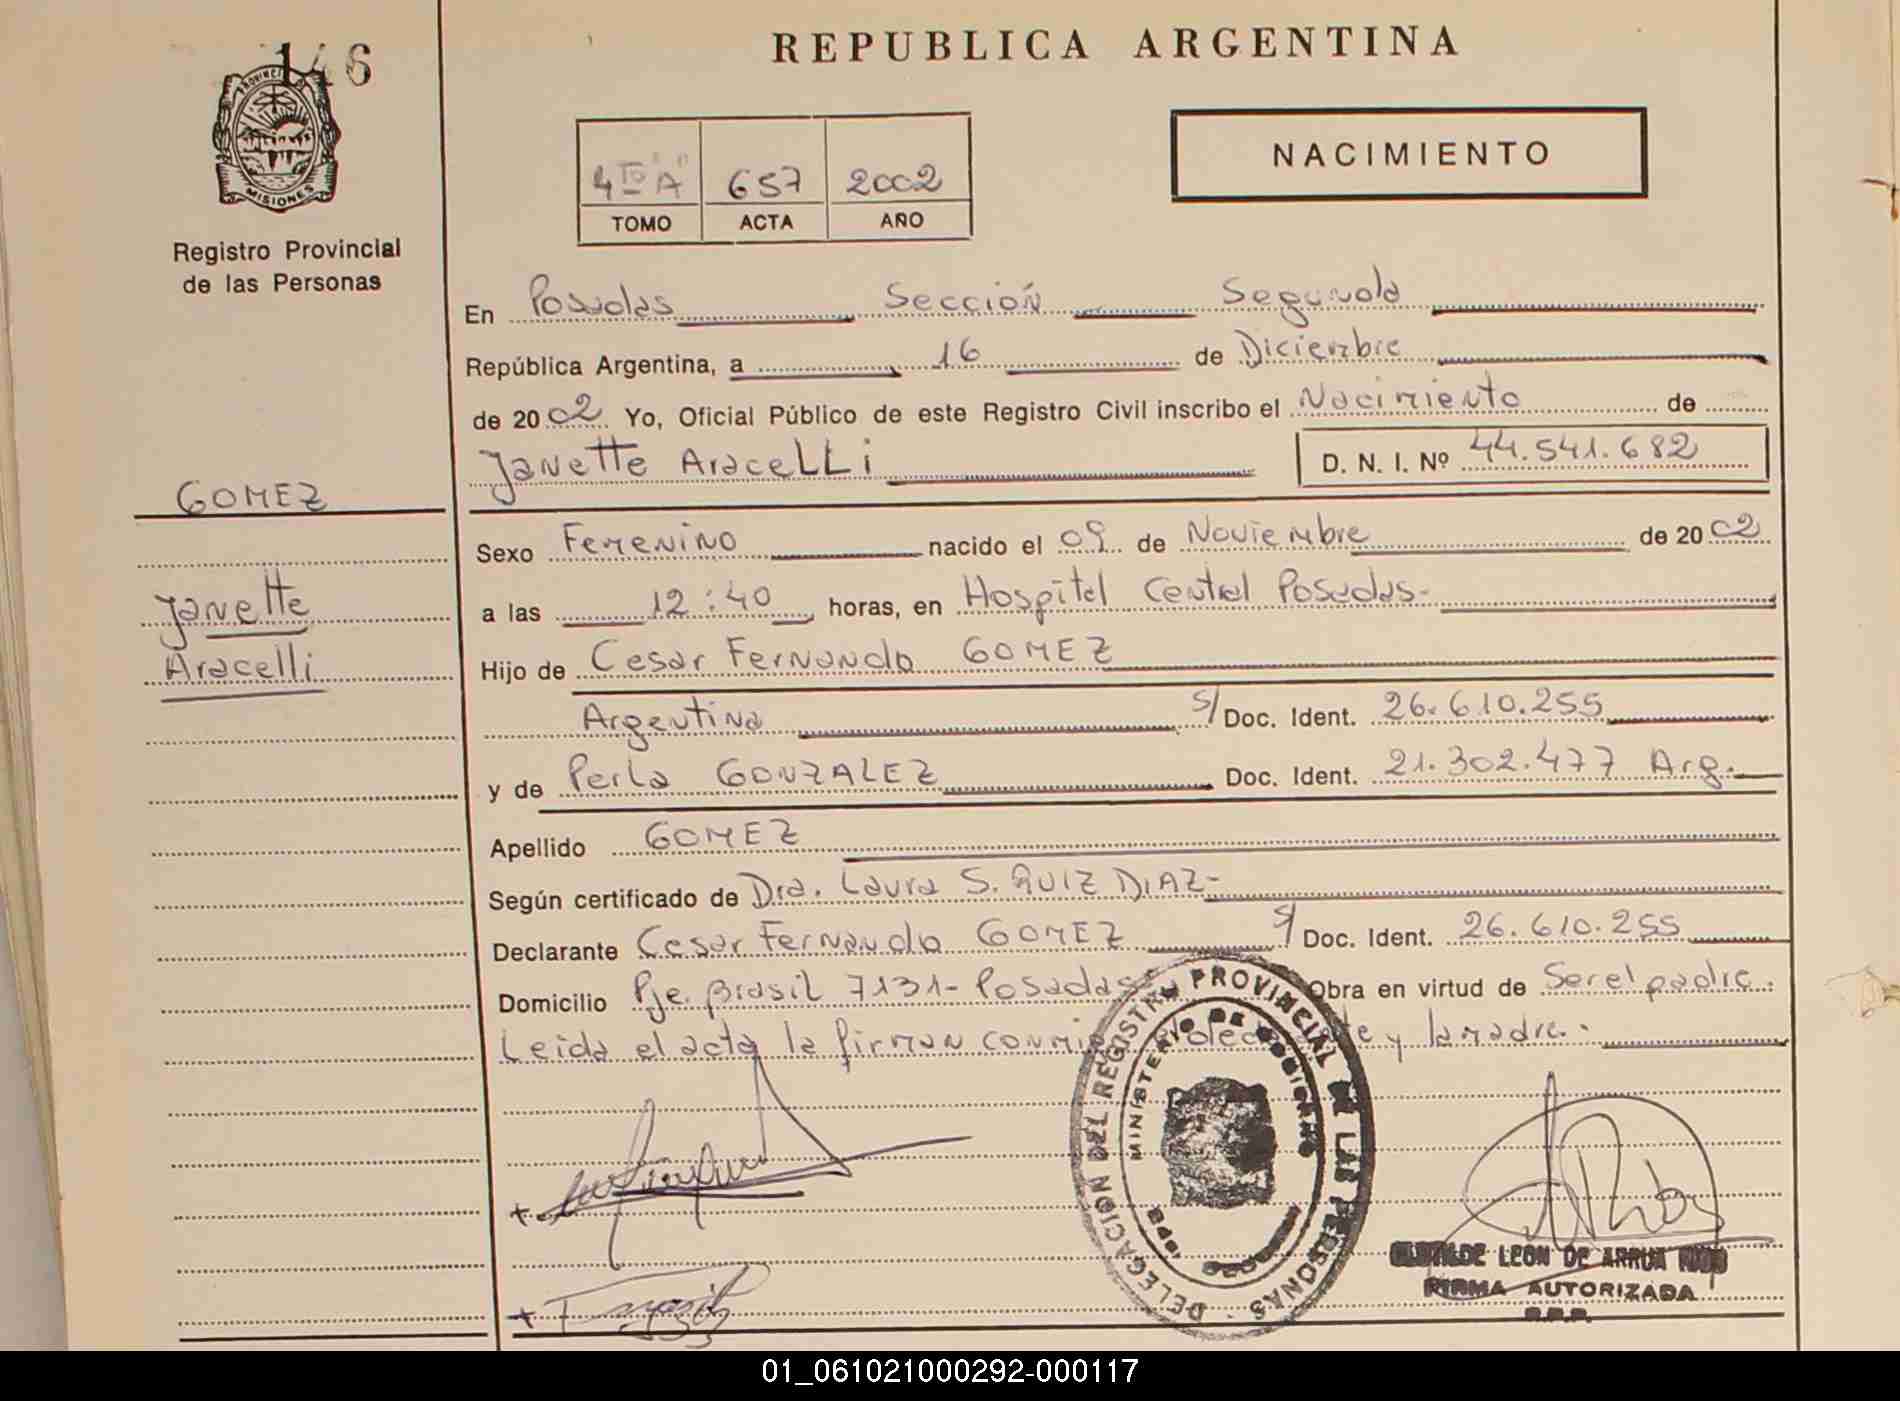 146
PROVINCIA DE
MISIONES
Registro Provincial
de las Personas
GOMEZ
Janette
Aracelli
REPUBLICA ARGENTINA
4to A 657 2002
TOMO ACTA AÑO
NACIMIENTO
En Posadas Sección Segunda
República Argentina, a 16 de Diciembre
de 2002 Yo, Oficial Público de este Registro Civil inscribo el Nacimiento de
Janette AraceLLi D. N. I. Nº 44.541.682
Sexo Femenino nacido el 09 de Noviembre de 2002
a las 12:40 horas, en Hospital Central Posadas-
Hijo de Cesar Fernando GOMEZ
Argentina S/ Doc. Ident. 26.610.255
y de Perla GONZALEZ Doc. Ident. 21.302.477 Arg.
Apellido GOMEZ
Según certificado de Dra. Laura S. RUIZ DIAZ-
Declarante Cesar Fernando GOMEZ S/ Doc. Ident. 26.610.255
Domicilio Pje. Brasil 7131- Posadas Obra en virtud de Ser el padre.
Leida el acta la firman conmigo y la madre.
DELEGACION DEL REGISTRO PROVINCIAL DE LAS PERSONAS
MINISTERIO DE GOBIERNO
CLOTILDE LEON DE ARRUA
FIRMA AUTORIZADA
R.P.P.
01_061021000292-000117